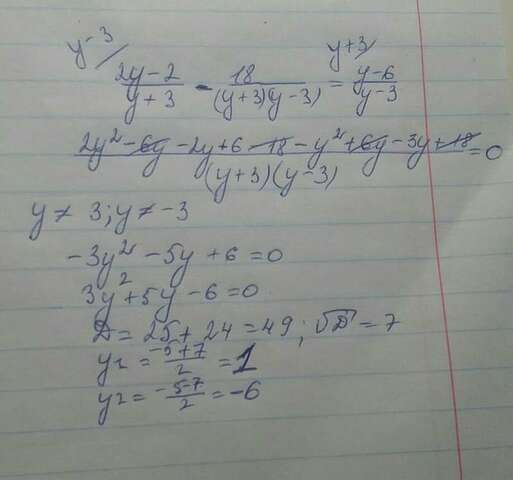 y-3 y+3
(2y-2)/(y+3) - 18/((y+3)(y-3)) = (y-6)/(y-3)
(2y²-6y-2y+6-18-y²+6y-3y+18)/((y+3)(y-3)) = 0
y ≠ 3; y ≠ -3
-3y²-5y+6=0
3y²+5y-6=0
D = 25+24=49; √D=7
y₁ = (-5+7)/2 = 1
y₂ = (-5-7)/2 = -6